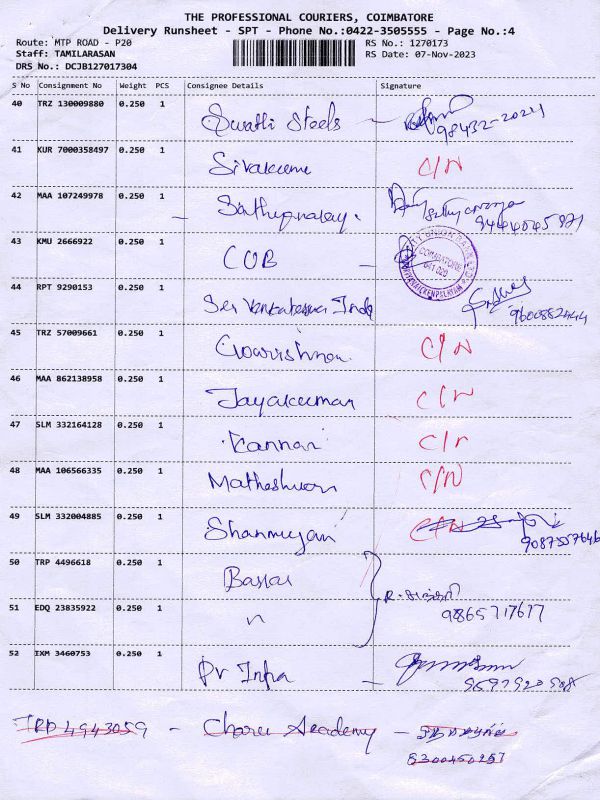 THE PROFESSIONAL COURIERS, COIMBATORE
Delivery Runsheet - SPT - Phone No.:0422-3505555 - Page No.:4
Route: MTP ROAD - P20 RS No.: 1270173
Staff: TAMILARASAN RS Date: 07-Nov-2023
DRS No.: DCJB127017304
S No Consignment No Weight PCS Consignee Details Signature
40 TRZ 130009880 0.250 1 Swathi Steels - 98432-20241
41 KUR 7000358497 0.250 1 Sivakumar C/N
42 MAA 107249978 0.250 1 Sathyanaray. 9444045871
43 KMU 2666922 0.250 1 CUB - CITY UNION BANK COIMBATORE 641 020
44 RPT 9290153 0.250 1 Sri Venkateswa Inds 9600882444
45 TRZ 57009661 0.250 1 Gowrishnan C/N
46 MAA 862138958 0.250 1 Jayakumar C/N
47 SLM 332164128 0.250 1 Kannan C/N
48 MAA 106566335 0.250 1 Matheshwaran C/N
49 SLM 332004885 0.250 1 Shanmugan C/N 9087557646
50 TRP 4496618 0.250 1 Baskar
51 EDQ 23835922 0.250 1 " 9865717677
52 IXM 3460753 0.250 1 Pr Infra -
TRP 4943059 - Charu Academy - 8300450257